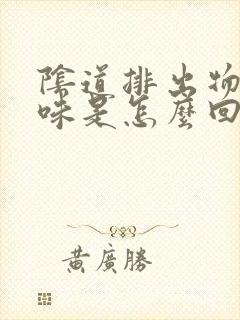 陰道排出物
味是怎麼回
黃廣勝